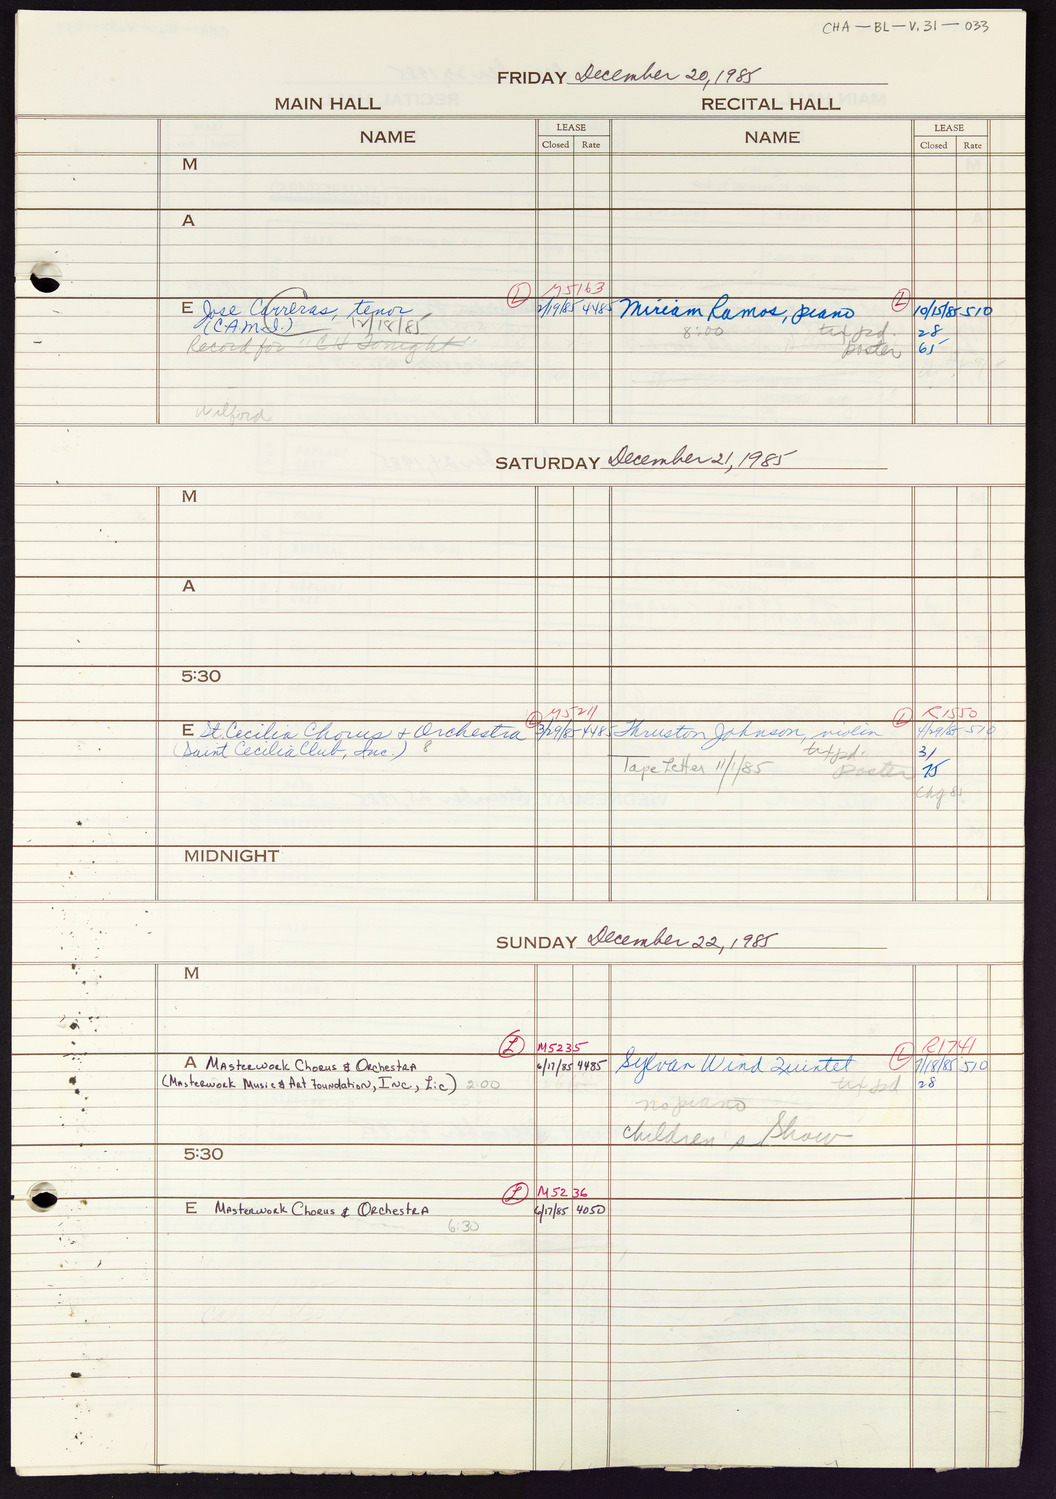 CHA-BL-V.31-033
FRIDAY December 20, 1985
MAIN HALL RECITAL HALL
NAME LEASE NAME LEASE
Closed Rate Closed Rate
M
A
L M5163 L
E Jose Carreras, tenor 2/19/85 4485 Miriam Ramos, piano 10/15/85 510
(CAMI.) 12/18/85 8:00 txt pd. 28
Record for "CH Tonight" poster 65
Wilford
SATURDAY December 21, 1985
M
A
5:30
L M5211 L R1550
E St. Cecilia Chorus & Orchestra 3/29/85 4485 Thruston Johnson, violin 4/29/85 510
(Saint Cecilia Club, Inc.) 8 txt pd. 31
Tape Letter 11/1/85 poster 75
Chg 81
MIDNIGHT
SUNDAY December 22, 1985
M
L M5235 L R1741
A Masterwork Chorus & Orchestra 6/17/85 4485 Sylvan Wind Quintet 7/18/85 510
(Masterwork Music & Art Foundation, Inc., Lic) 2:00 txt pd 28
no piano
children's Show
5:30
L M5236
E Masterwork Chorus & Orchestra 6/17/85 4050
6:30